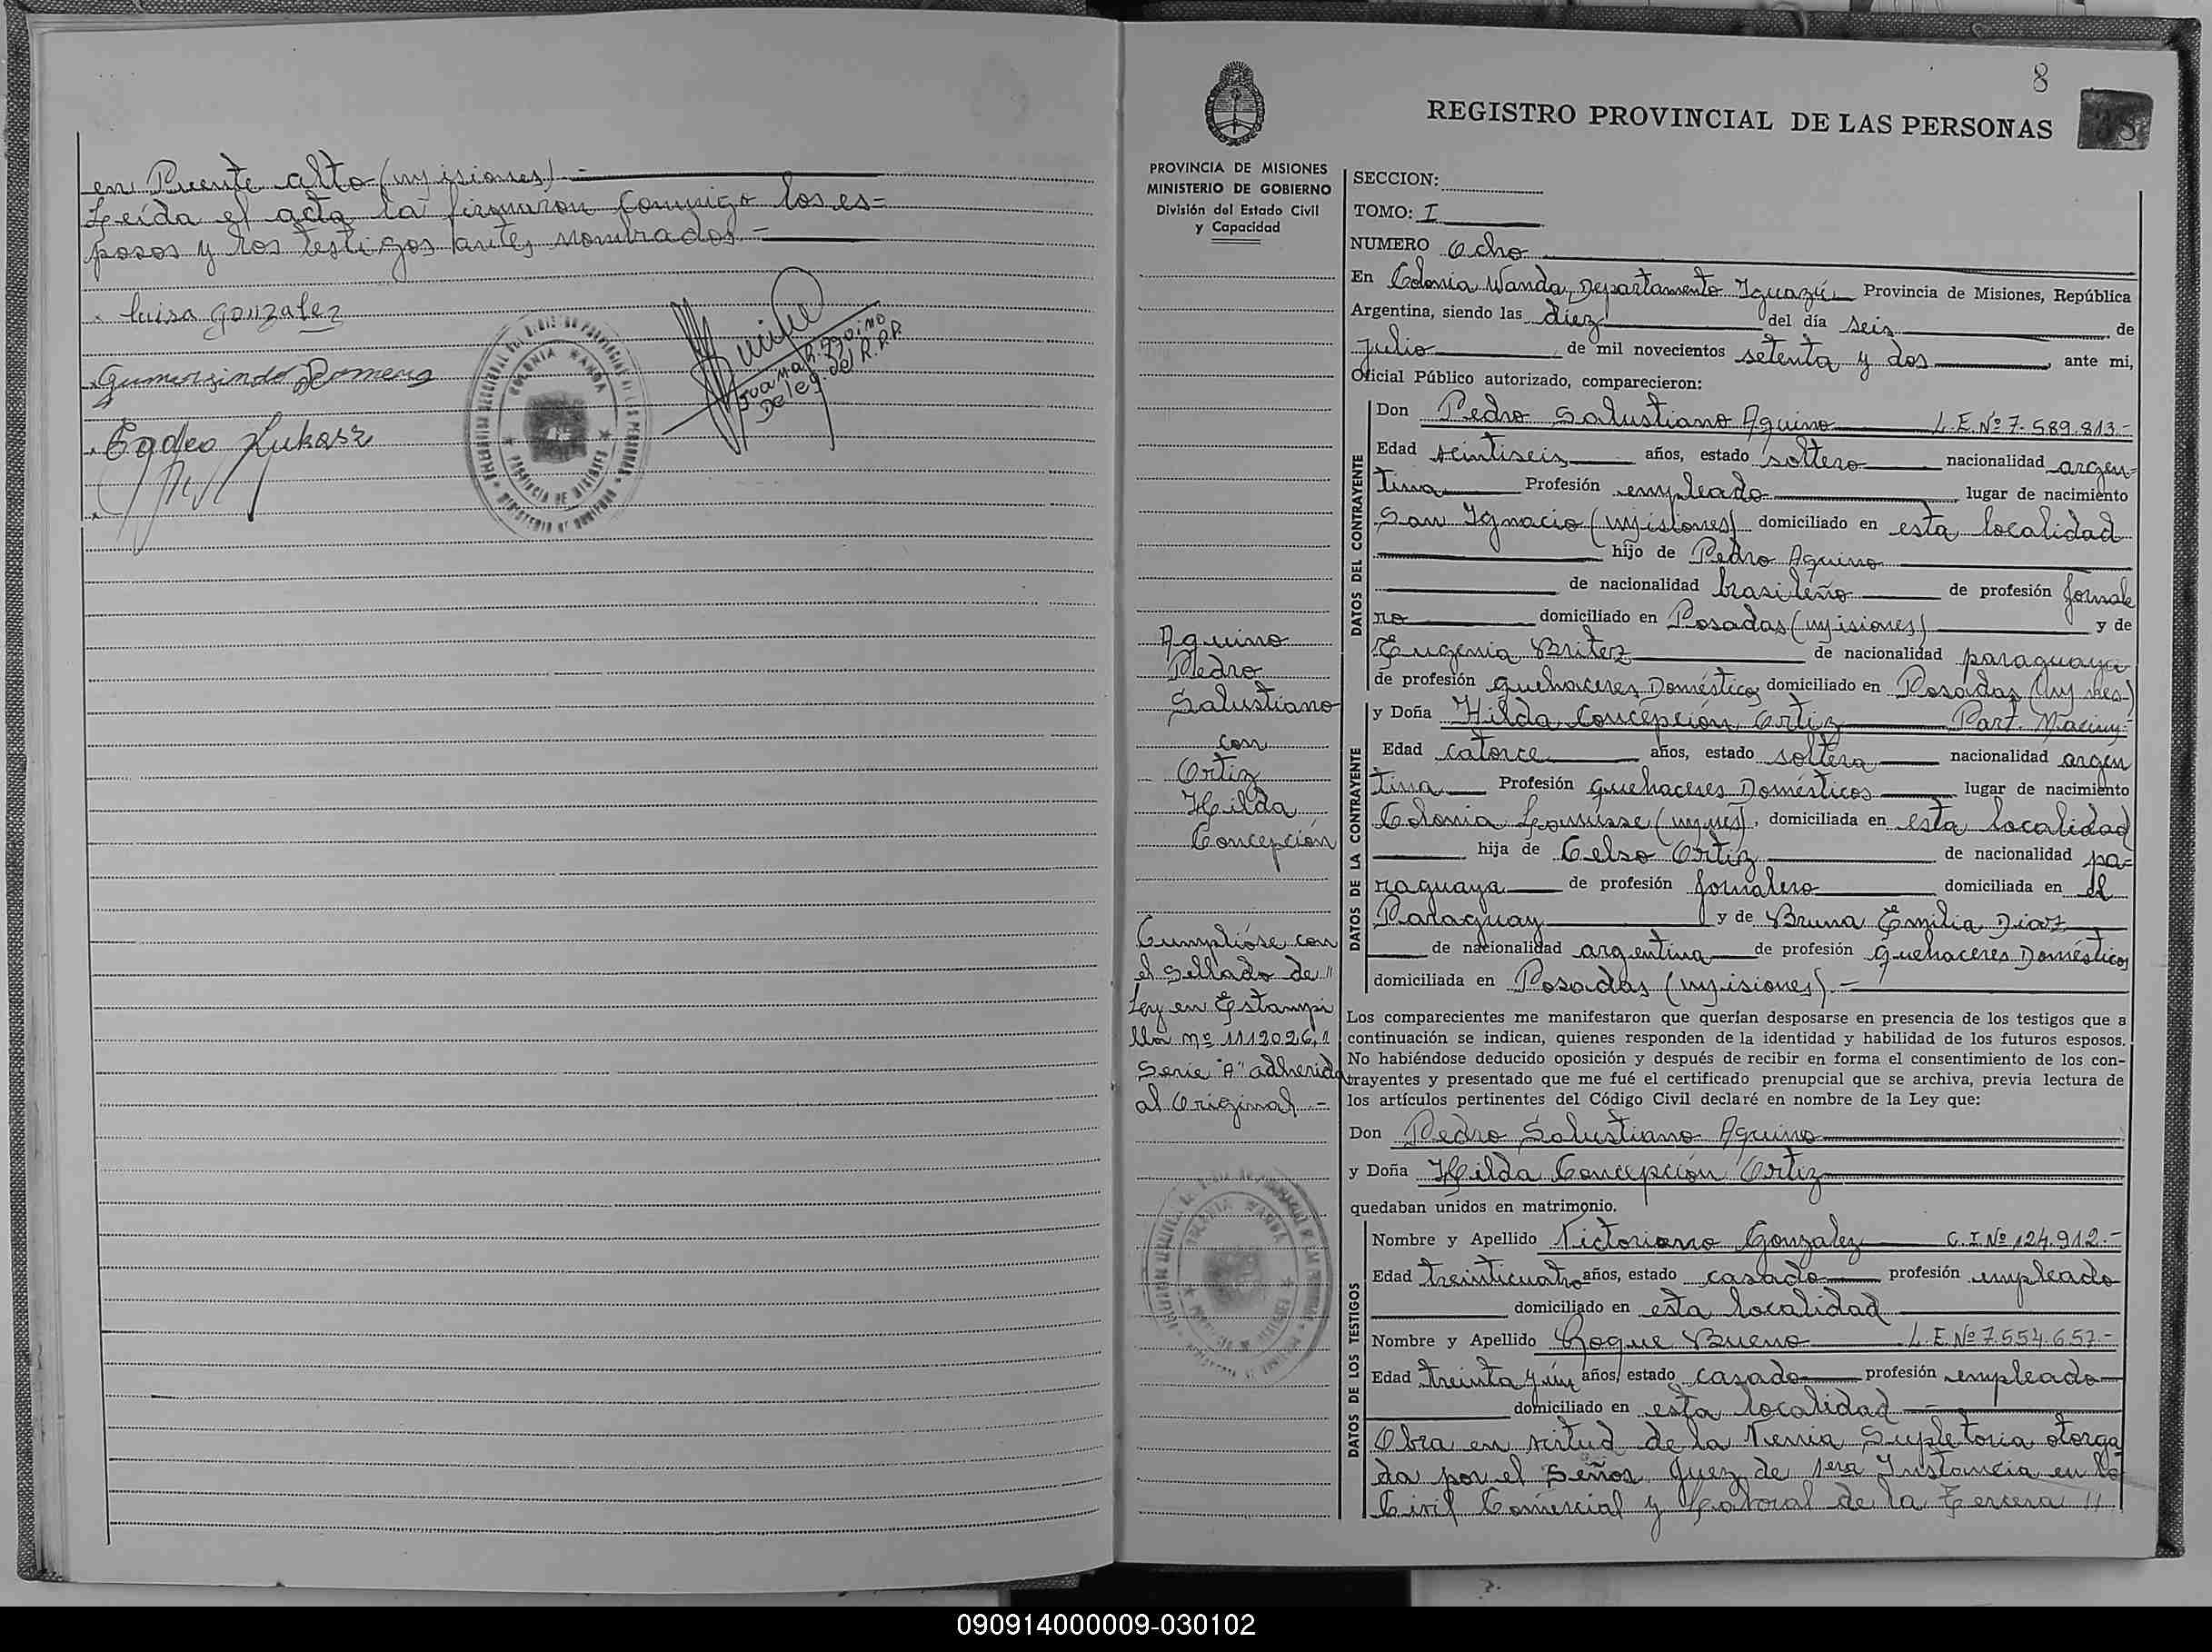 en Puente alto (misiones)
Leída el acta la firmaron conmigo los es=
posos y los testigos antes nombrados.-
luisa gonzalez
Gumersindo Romero
Tadeo Lukasz
Deleg. del R.P.P.
COLONIA WANDA
PROVINCIA DE MISIONES
8
REGISTRO PROVINCIAL DE LAS PERSONAS
PROVINCIA DE MISIONES
MINISTERIO DE GOBIERNO
División del Estado Civil
y Capacidad
Aquino
Pedro
Salustiano
con
Ortiz
Hilda
Concepción
Cumplióse con
el Sellado de "
Ley en Estampi
lla nº 1112026,"
Serie "A" adherida
al Original.-
COLONIA WANDA
SECCION:
TOMO: I
NUMERO Ocho
En Colonia Wanda, Departamento Iguazú Provincia de Misiones, República
Argentina, siendo las diez del día seis de
Julio de mil novecientos setenta y dos, ante mi,
Oficial Público autorizado, comparecieron:
DATOS DEL CONTRAYENTE
Don Pedro Salustiano Aquino L.E.Nº 7.589.813.-
Edad veintiseis años, estado soltero nacionalidad argen=
tina Profesión empleado lugar de nacimiento
San Ignacio (misiones) domiciliado en esta localidad
hijo de Pedro Aquino
de nacionalidad brasileño de profesión Jornale
ro domiciliado en Posadas (misiones) y de
Eugenia Britez de nacionalidad paraguaya
de profesión quehaceres Domésticos domiciliado en Posadas
DATOS DE LA CONTRAYENTE
y Doña Hilda Concepción Ortiz Part.
Edad catorce años, estado soltera nacionalidad argen
tina Profesión quehaceres Domésticos lugar de nacimiento
Colonia domiciliada en esta localidad
hija de Celso Ortiz de nacionalidad pa=
raguaya de profesión jornalero domiciliada en el
Paraguay y de Bruna Emilia Diaz
de nacionalidad argentina de profesión quehaceres Domésticos
domiciliada en Posadas (misiones).-
Los comparecientes me manifestaron que querían desposarse en presencia de los testigos que a
continuación se indican, quienes responden de la identidad y habilidad de los futuros esposos.
No habiéndose deducido oposición y después de recibir en forma el consentimiento de los con-
trayentes y presentado que me fué el certificado prenupcial que se archiva, previa lectura de
los artículos pertinentes del Código Civil declaré en nombre de la Ley que:
Don Pedro Salustiano Aquino
y Doña Hilda Concepción Ortiz
quedaban unidos en matrimonio.
DATOS DE LOS TESTIGOS
Nombre y Apellido Victoriano Gonzalez C.I.Nº 124.912.-
Edad treinticuatro años, estado casado profesión empleado
domiciliado en esta localidad
Nombre y Apellido Roque Bueno L.E.Nº 7.554.657.-
Edad treinta y ún años, estado casado profesión empleado
domiciliado en esta localidad
Obra en virtud de la Venia Supletoria otorga
da por el Señor Juez de 1era Instancia en lo
Civil Comercial y Laboral de la Tercera "
090914000009-030102